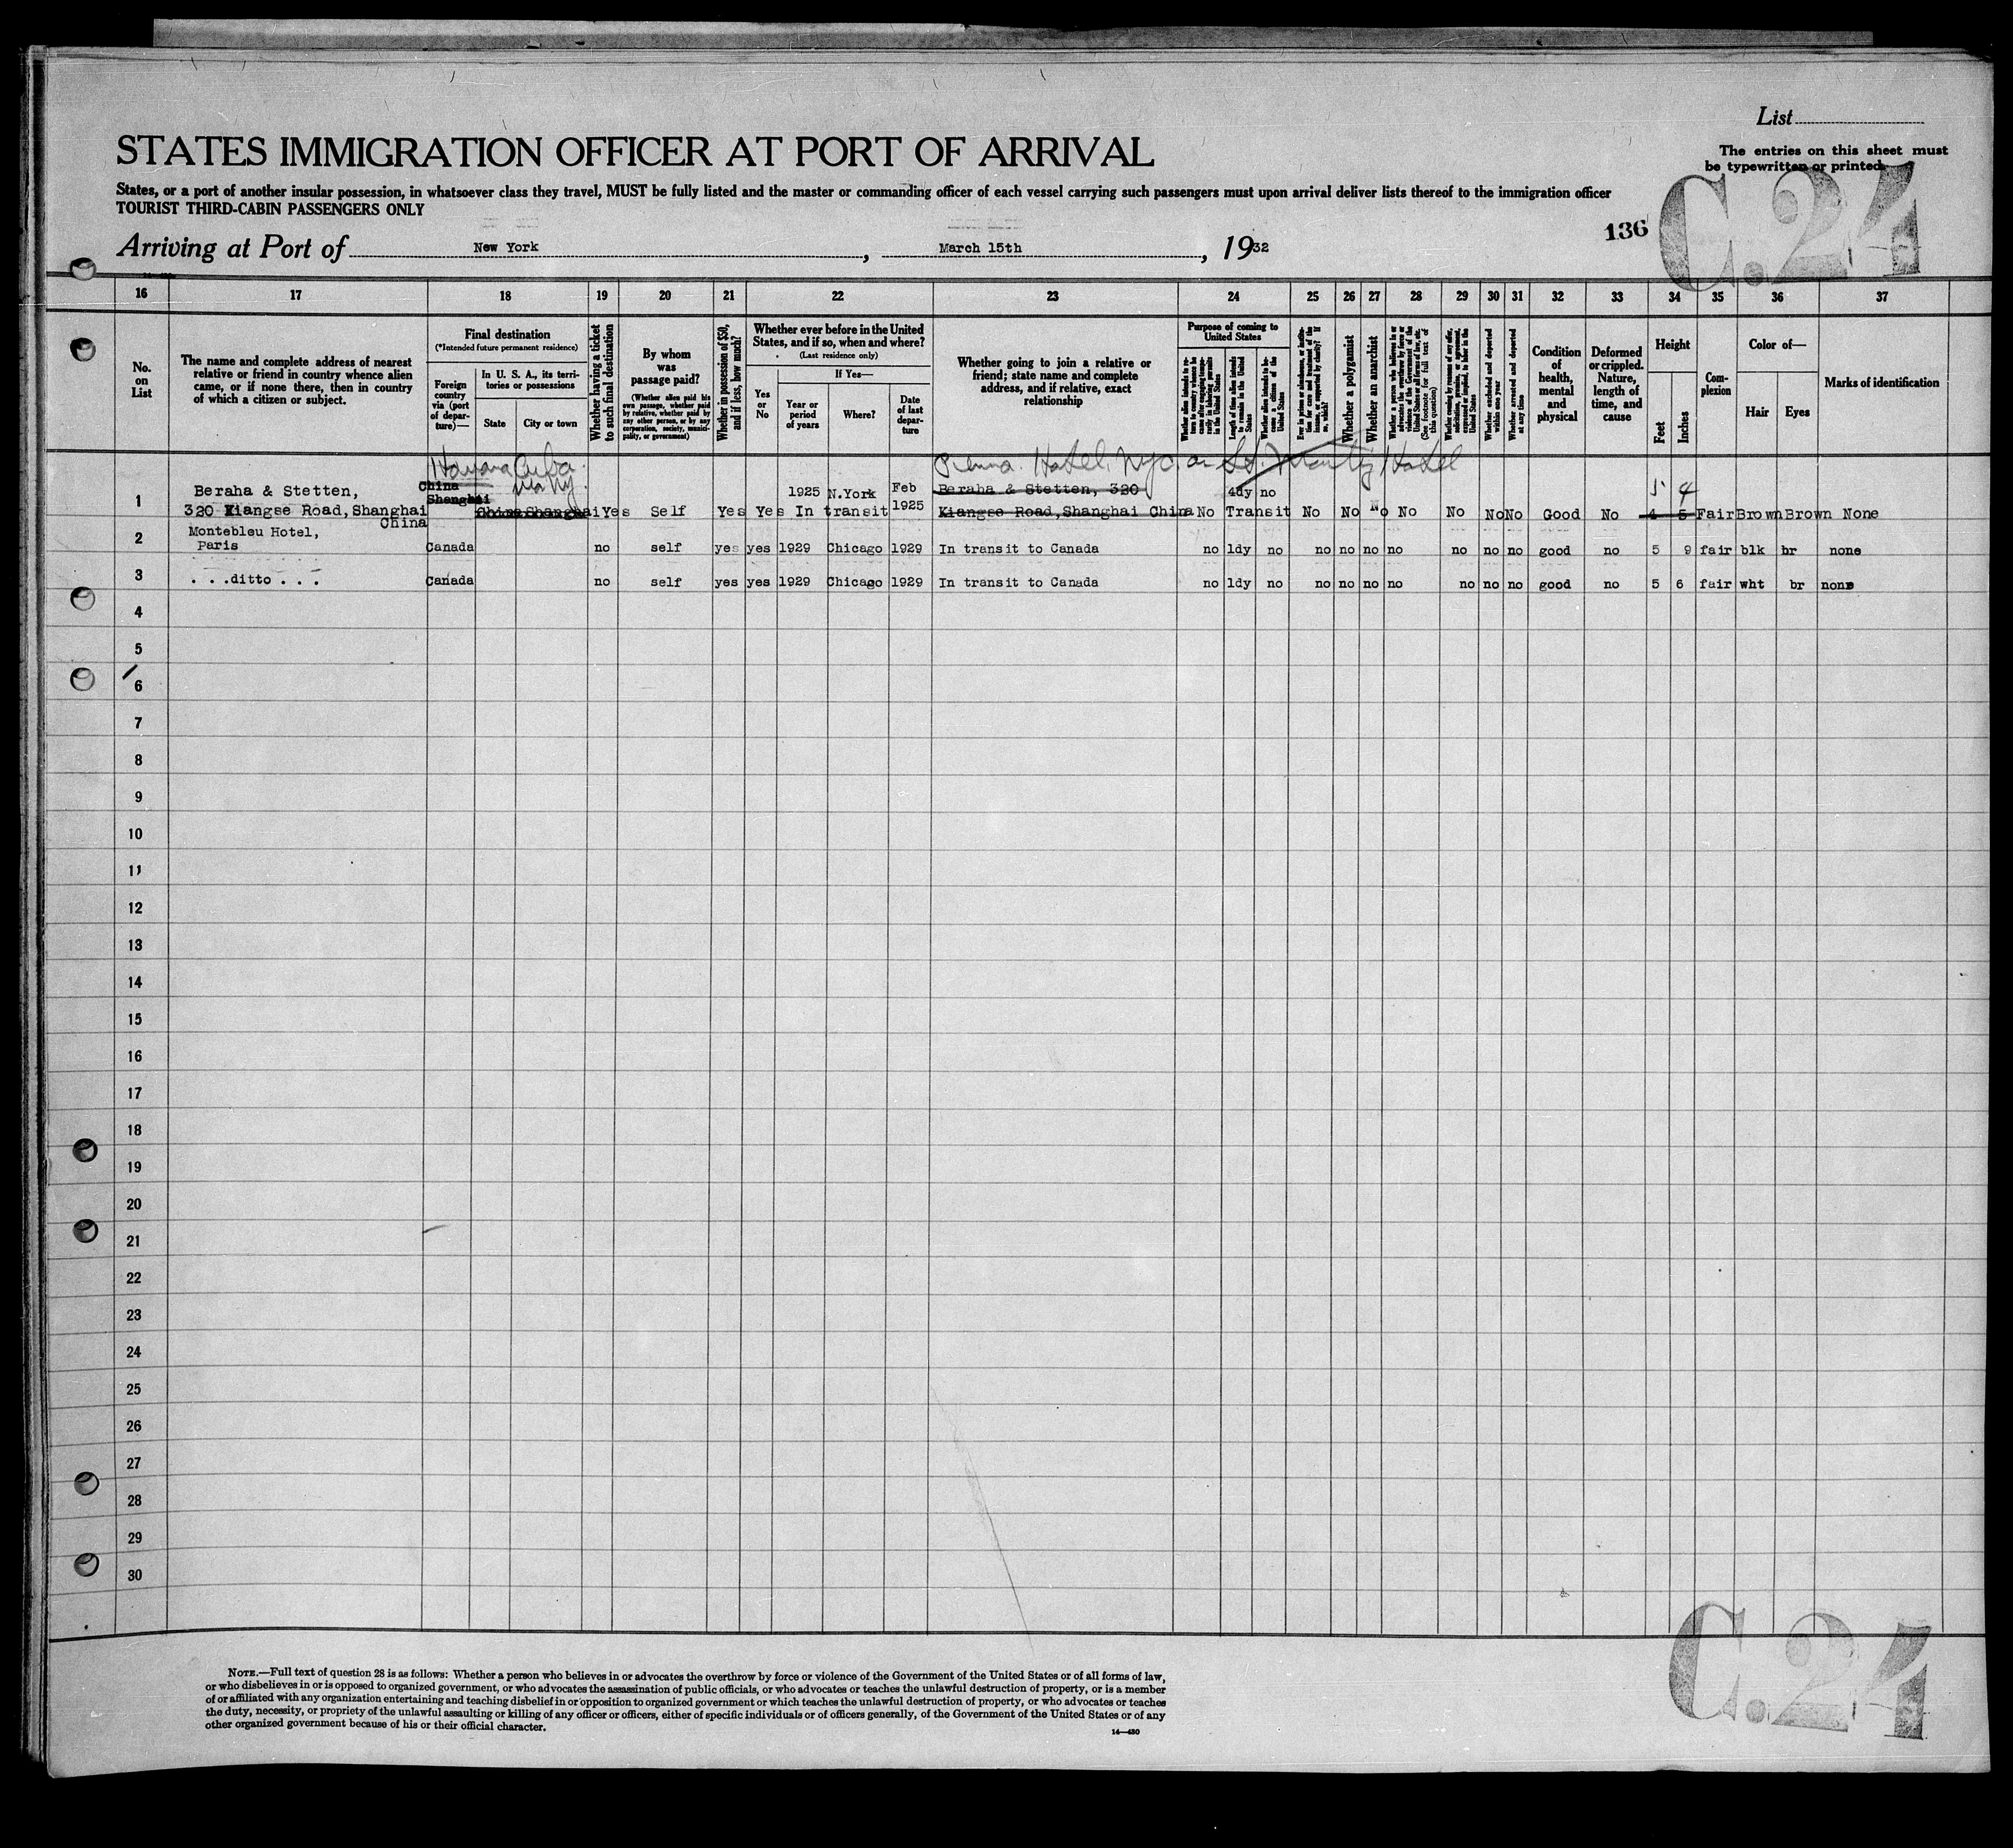 List
STATES IMMIGRATION OFFICER AT PORT OF ARRIVAL
The entries on this sheet must
be typewritten or printed.
States, or a port of another insular possession, in whatsoever class they travel, MUST be fully listed and the master or commanding officer of each vessel carrying such passengers must upon arrival deliver lists thereof to the immigration officer
TOURIST THIRD-CABIN PASSENGERS ONLY
C.24
136
Arriving at Port of New York, March 15th, 1932
16 17 18 19 20 21 22 23 24 25 26 27 28 29 30 31 32 33 34 35 36 37
No.
on
List
The name and complete address of nearest
relative or friend in country whence alien
came, or if none there, then in country
of which a citizen or subject.
Final destination
(*Intended future permanent residence)
Foreign
country
via (port
of depar-
ture)—
In U. S. A., its terri-
tories or possessions
State
City or town
Whether having a ticket
to such final destination
By whom
was
passage paid?
(Whether alien paid his
own passage, whether paid
by relative, whether paid by
any other person, or by any
corporation, society, munici-
pality, or government)
Whether in possession of $50,
and if less, how much?
Whether ever before in the United
States, and if so, when and where?
(Last residence only)
Yes
or
No
If Yes—
Year or
period
of years
Where?
Date
of last
depar-
ture
Whether going to join a relative or
friend; state name and complete
address, and if relative, exact
relationship
Purpose of coming to
United States
Length of time alien intends
to remain in the United
States
Whether alien intends to be-
come a citizen of the
United States
Whether a polygamist
Whether an anarchist
(See footnote for full text of
this question)
Whether excluded and deported
within one year
Whether arrested and deported
at any time
Condition
of
health,
mental
and
physical
Deformed
or crippled.
Nature,
length of
time, and
cause
Height
Feet
Inches
Com-
plexion
Color of—
Hair
Eyes
Marks of identification
Havana Cuba
via Ny.
Hotel, NYC. or St. Hotel
1 Beraha & Stetten, China 1925 N.York Feb Beraha & Stetten, 320 4dy no 5 4
Shanghai
320 Kiangse Road, Shanghai China Shanghai Yes Self Yes Yes In transit 1925 Kiangse Road, Shanghai China No Transit No No No No No No No Good No 4 5 Fair Brown Brown None
China
2 Montebleu Hotel,
Paris Canada no self yes yes 1929 Chicago 1929 In transit to Canada no 1dy no no no no no no no no good no 5 9 fair blk br none
3 . . .ditto . . . Canada no self yes yes 1929 Chicago 1929 In transit to Canada no 1dy no no no no no no no no good no 5 6 fair wht br none
4
5
6
7
8
9
10
11
12
13
14
15
16
17
18
19
20
21
22
23
24
25
26
27
28
29
30
C.24
NOTE.—Full text of question 28 is as follows: Whether a person who believes in or advocates the overthrow by force or violence of the Government of the United States or of all forms of law,
or who disbelieves in or is opposed to organized government, or who advocates the assassination of public officials, or who advocates or teaches the unlawful destruction of property, or is a member
of or affiliated with any organization entertaining and teaching disbelief in or opposition to organized government or which teaches the unlawful destruction of property, or who advocates or teaches
the duty, necessity, or propriety of the unlawful assaulting or killing of any officer or officers, either of specific individuals or of officers generally, of the Government of the United States or of any
other organized government because of his or their official character.
14—430